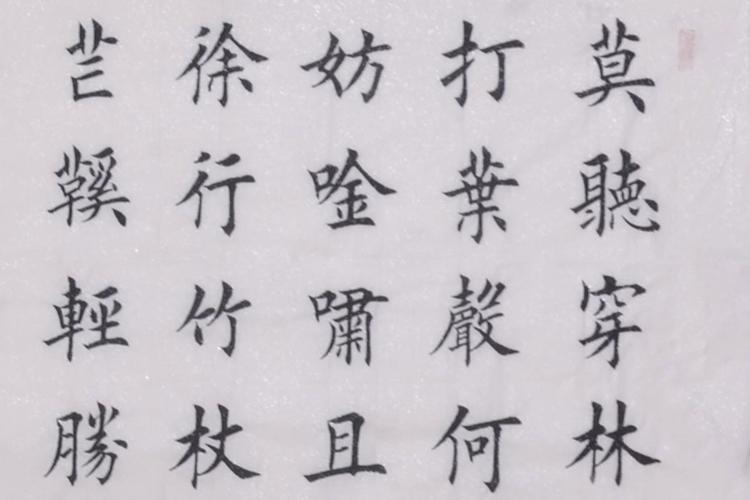 莫聽穿林
打葉聲何
妨唫嘯且
徐行竹杖
芒鞵輕勝